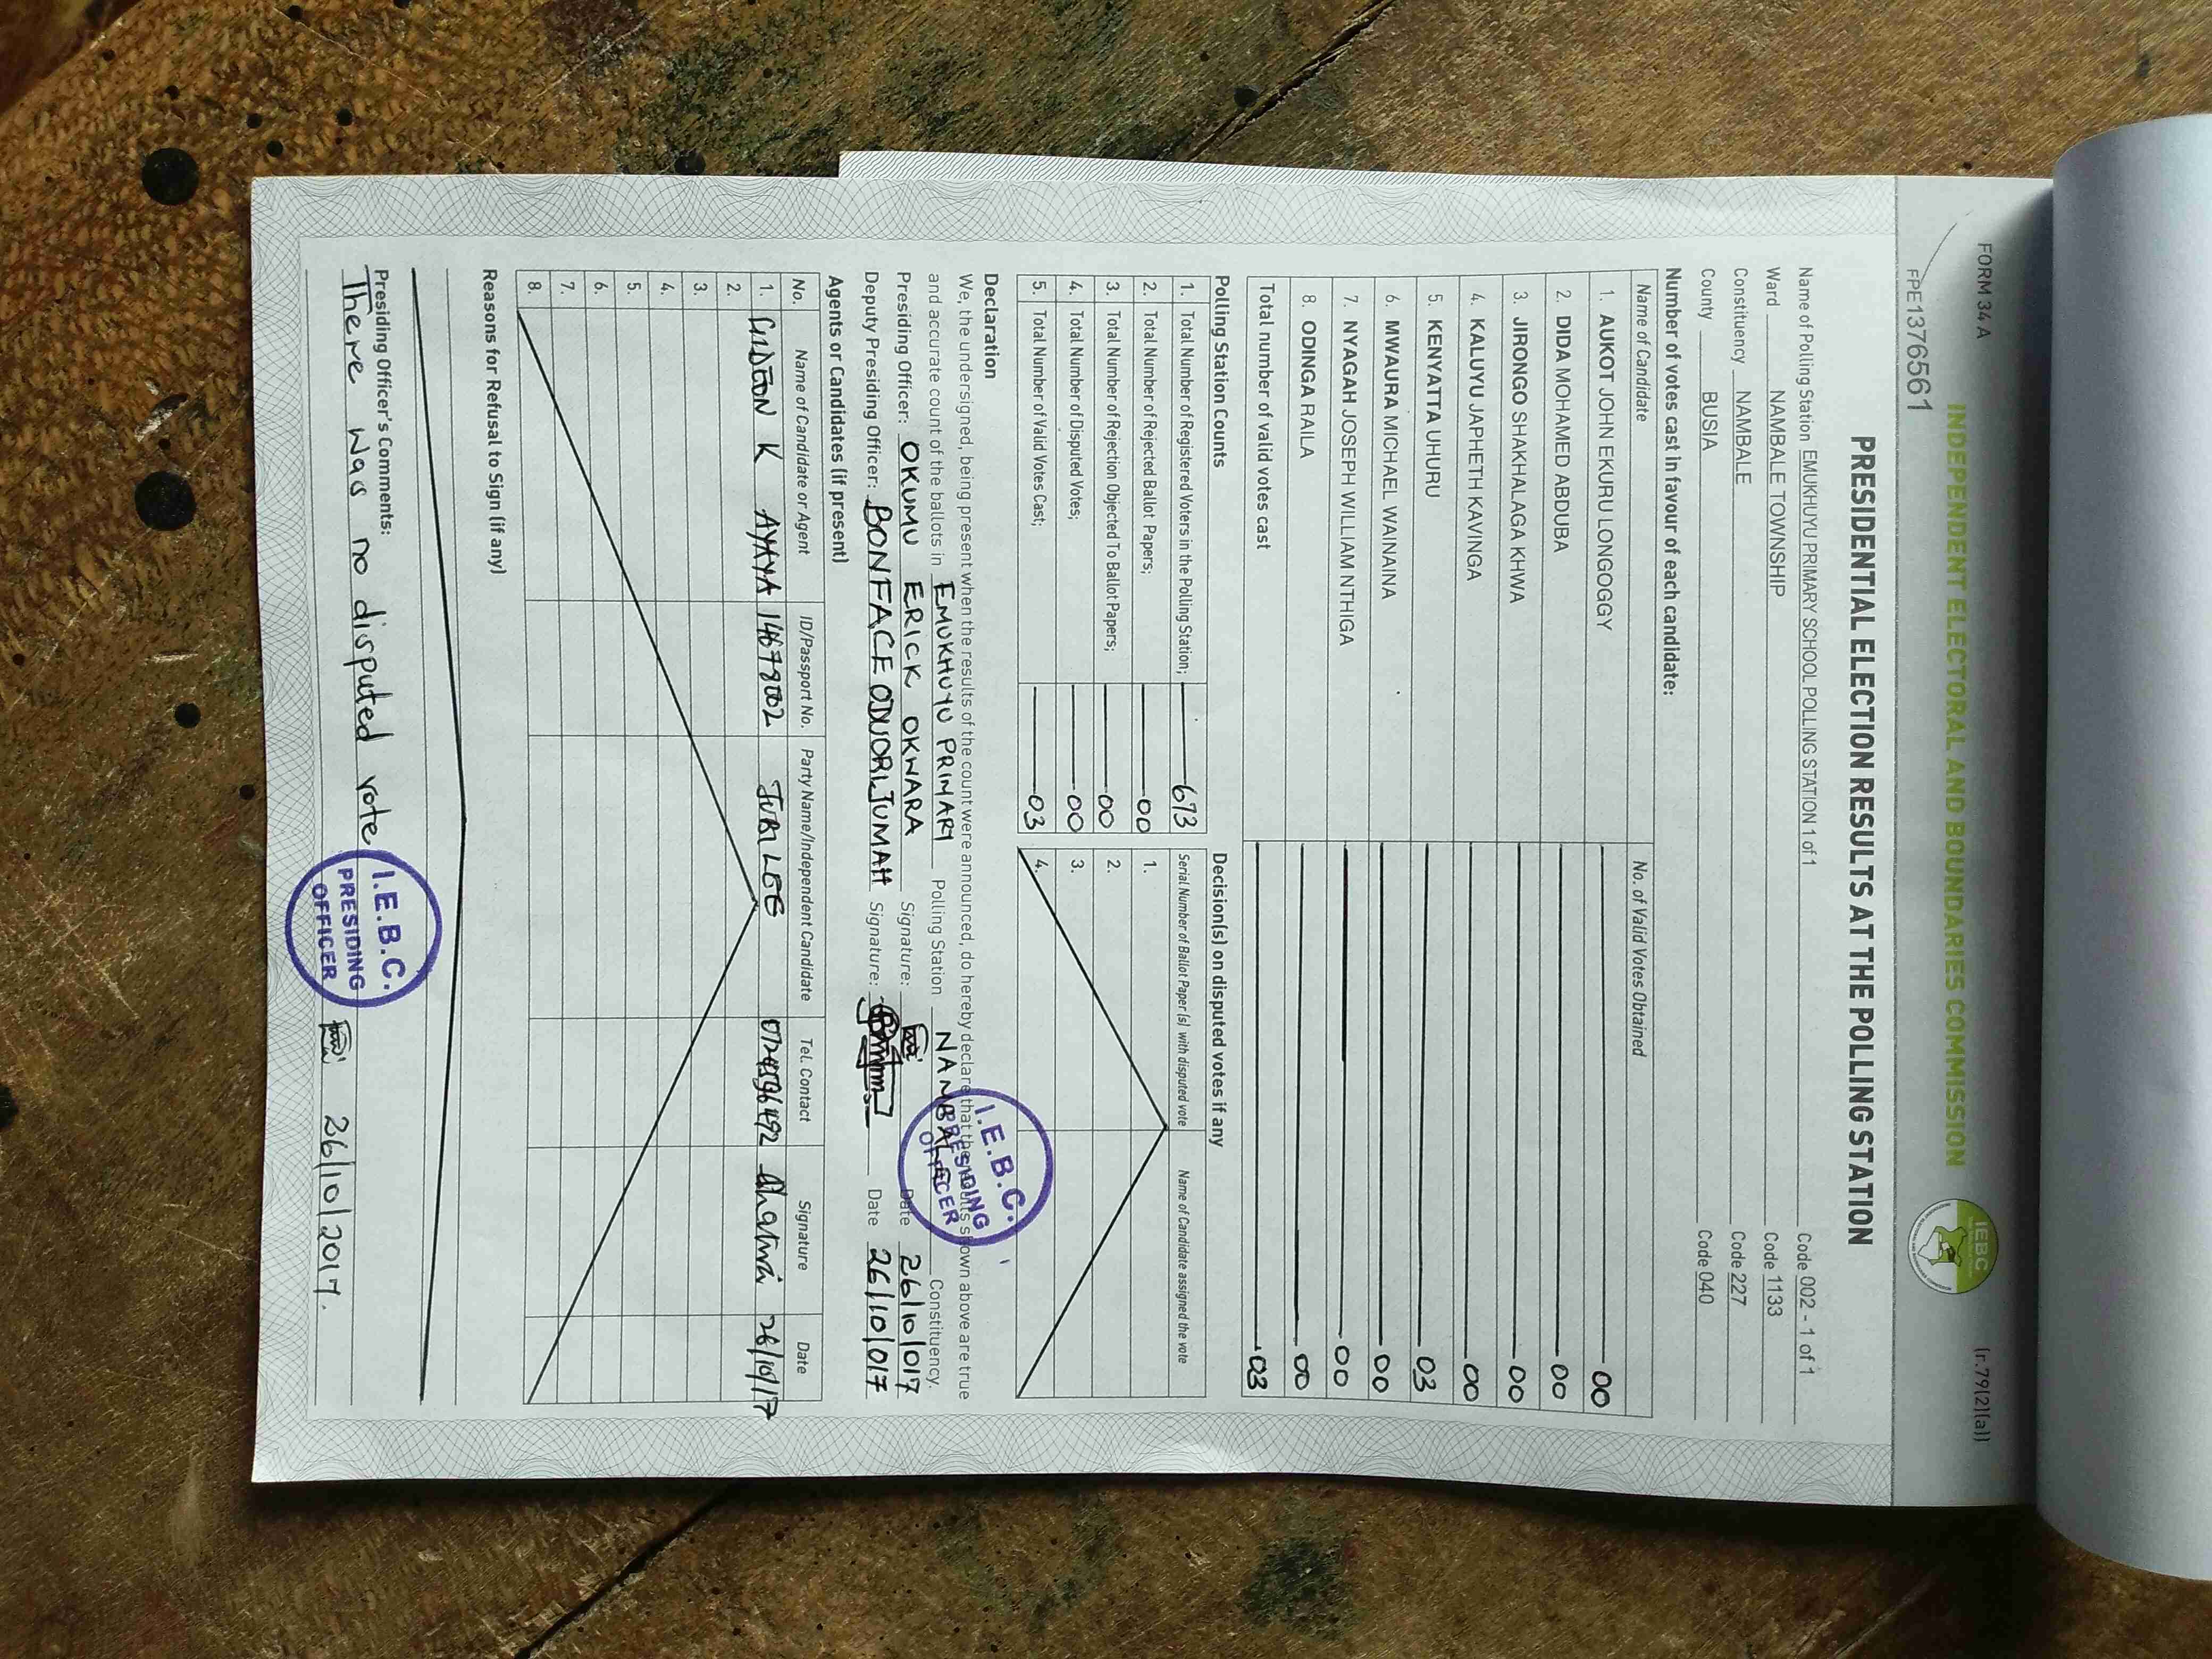 FORM 34 A
(r.79(2)(a))
INDEPENDENT ELECTORAL AND BOUNDARIES COMMISSION
IEBC
FPE1376561
PRESIDENTIAL ELECTION RESULTS AT THE POLLING STATION
Name of Polling Station EMUKHUYU PRIMARY SCHOOL POLLING STATION 1 of 1 Code 002 - 1 of 1
Ward NAMBALE TOWNSHIP Code 1133
Constituency NAMBALE Code 227
County BUSIA Code 040
Number of votes cast in favour of each candidate:
Name of Candidate No. of Valid Votes Obtained
1. AUKOT JOHN EKURU LONGOGGY 00
2. DIDA MOHAMED ABDUBA 00
3. JIRONGO SHAKHALAGA KHWA 00
4. KALUYU JAPHETH KAVINGA 00
5. KENYATTA UHURU 03
6. MWAURA MICHAEL WAINAINA 00
7. NYAGAH JOSEPH WILLIAM NTHIGA 00
8. ODINGA RAILA 00
Total number of valid votes cast 03
Polling Station Counts
1. Total Number of Registered Voters in the Polling Station; 673
2. Total Number of Rejected Ballot Papers; 00
3. Total Number of Rejection Objected To Ballot Papers; 00
4. Total Number of Disputed Votes; 00
5. Total Number of Valid Votes Cast; 03
Decision(s) on disputed votes if any
Serial Number of Ballot Paper (s) with disputed vote Name of Candidate assigned the vote
1.
2.
3.
4.
Declaration
We, the undersigned, being present when the results of the count were announced, do hereby declare that the results shown above are true
and accurate count of the ballots in EMUKHUYU PRIMARY Polling Station NAMBALE Constituency.
Presiding Officer: OKUMU ERICK OKWARA Signature: Date 26/10/017
Deputy Presiding Officer: BONFACE ODUORI JUMAH Signature: Date 26/10/017
I.E.B.C.
PRESIDING
OFFICER
Agents or Candidates (if present)
No. Name of Candidate or Agent ID/Passport No. Party Name/Independent Candidate Tel. Contact Signature Date
1. GIDEON K AYAYA JUBILEE 26/10/17
2.
3.
4.
5.
6.
7.
8.
Reasons for Refusal to Sign (if any)
Presiding Officer's Comments:
There was no disputed vote
26/10/2017.
I.E.B.C.
PRESIDING
OFFICER